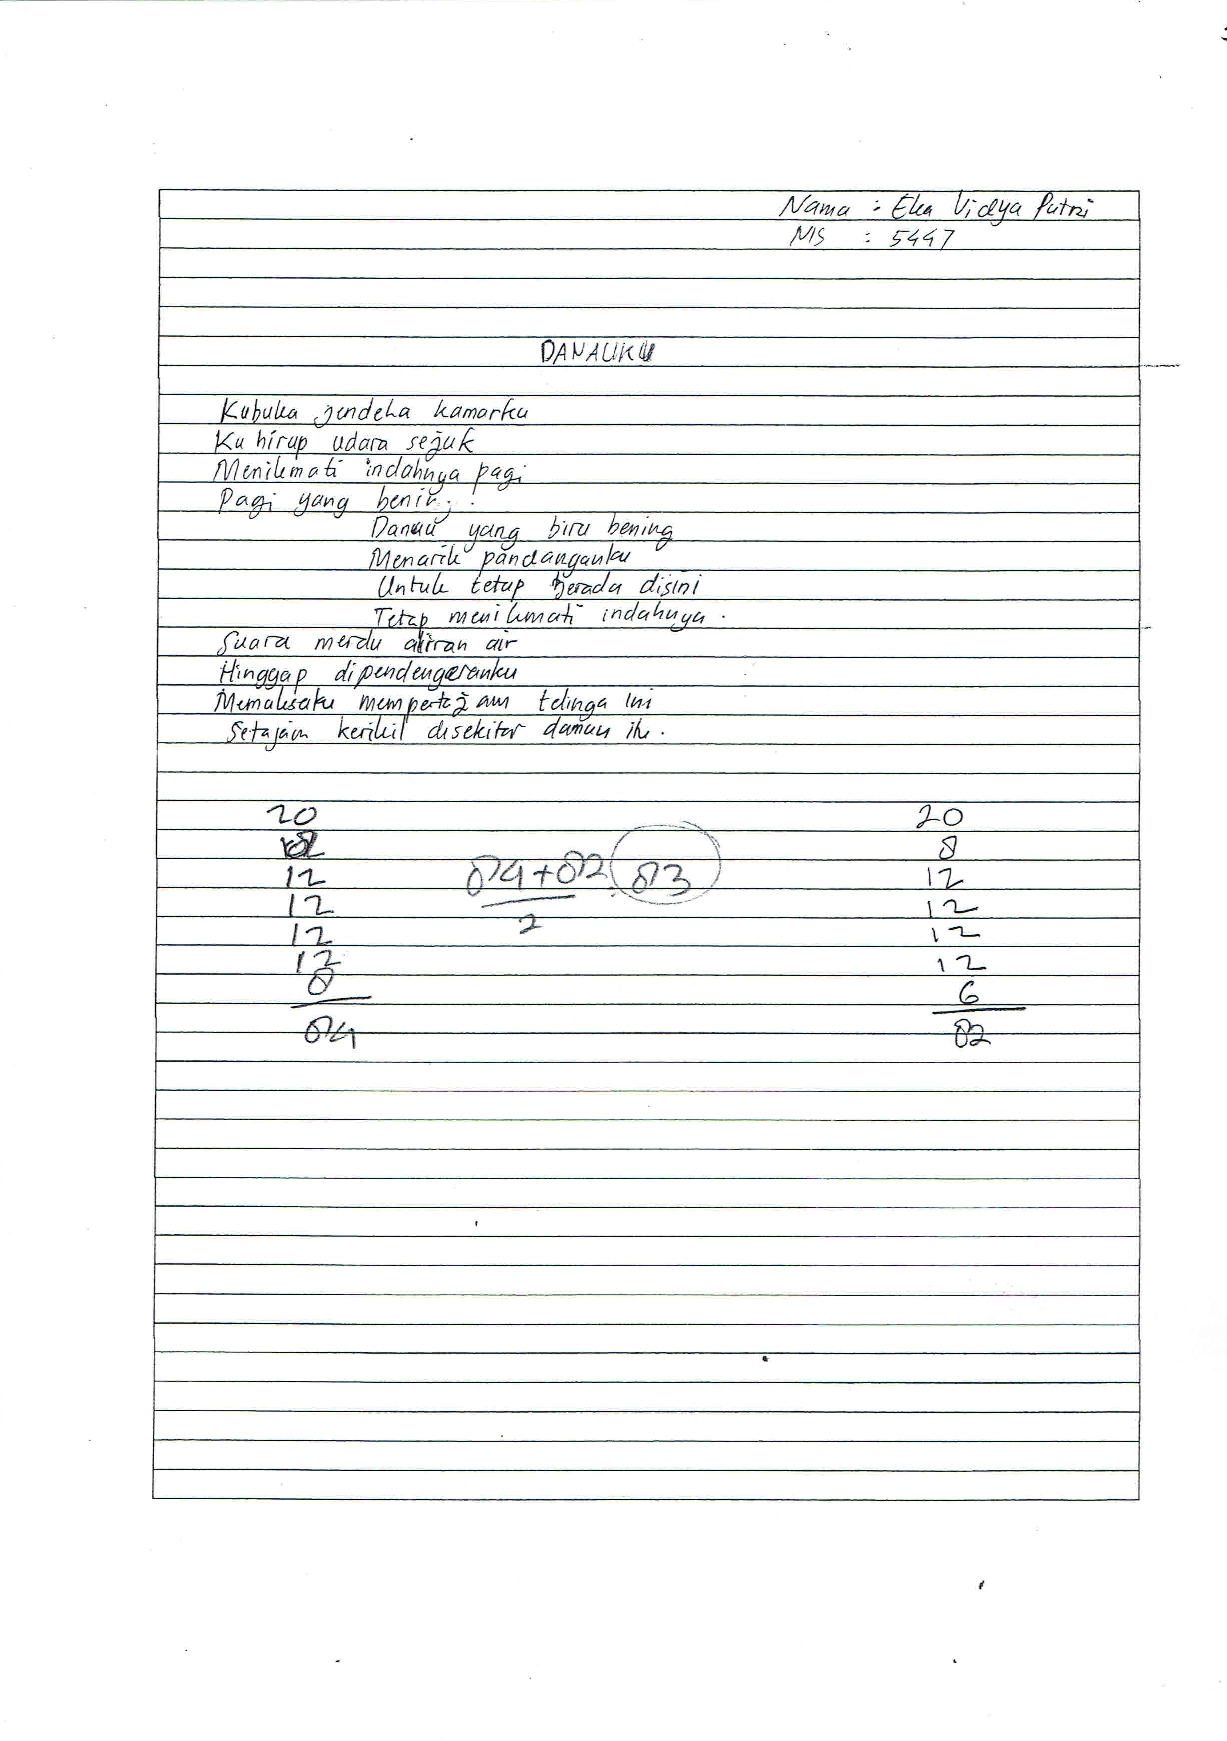 Nama : Eka Vidya Putri
NIS : 5447
DANAUKU
Kubuka jendela kamarku
Ku hirup udara sejuk
Menikmati indahnya pagi
Pagi yang
Danau yang biru bening
Menarik pandanganku
Untuk tetap berada disini
Tetap menikmati indahnya .
Suara merdu aliran air
Hinggap dipendengaranku
Memaksaku mempertajam telinga ini
Setajam kerikil disekitar danau itu .
20 20
8
12 12
12 12
12 12
12 12
8 6
84 82
84+82 : 83
2